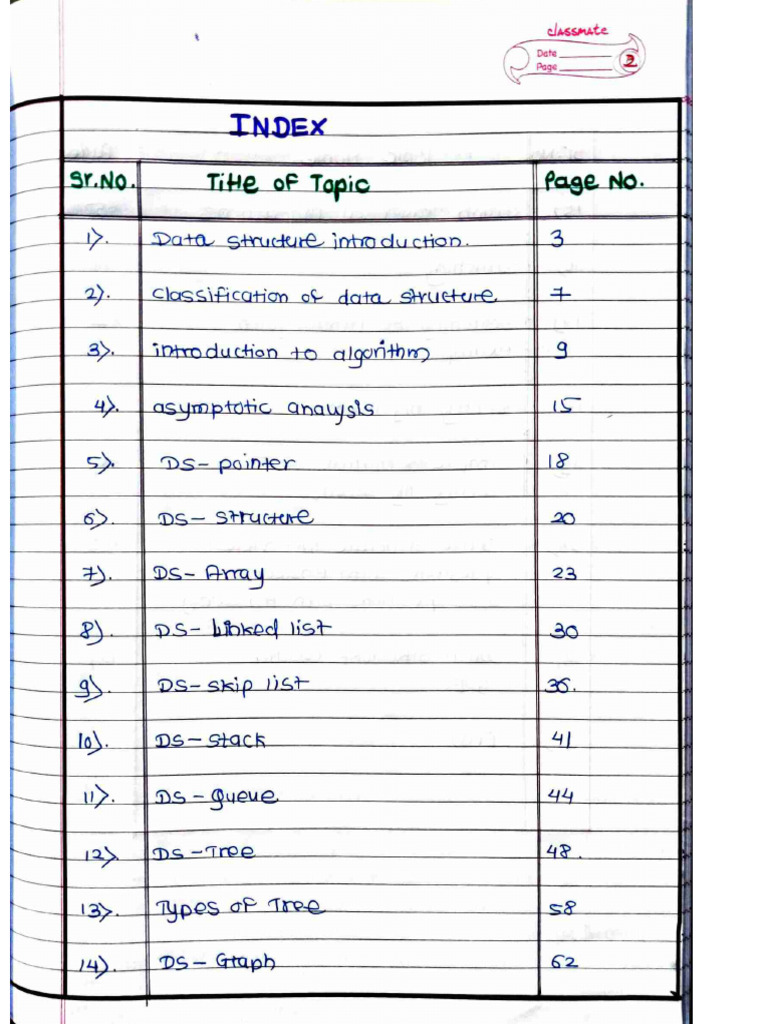 classmate
Date
Page 2
INDEX
Sr.No. Title of Topic Page No.
1). Data structure introduction. 3
2). classification of data structure 7
3). introduction to algorithm 9
4). asymptotic analysis 15
5). DS- pointer 18
6). DS- structure 20
7). DS- Array 23
8). DS- Linked list 30
9). DS- skip list 36.
10). DS- stack 41
11). DS- Queue 44
12). DS-Tree 48.
13). Types of Tree 58
14). DS- Graph 62